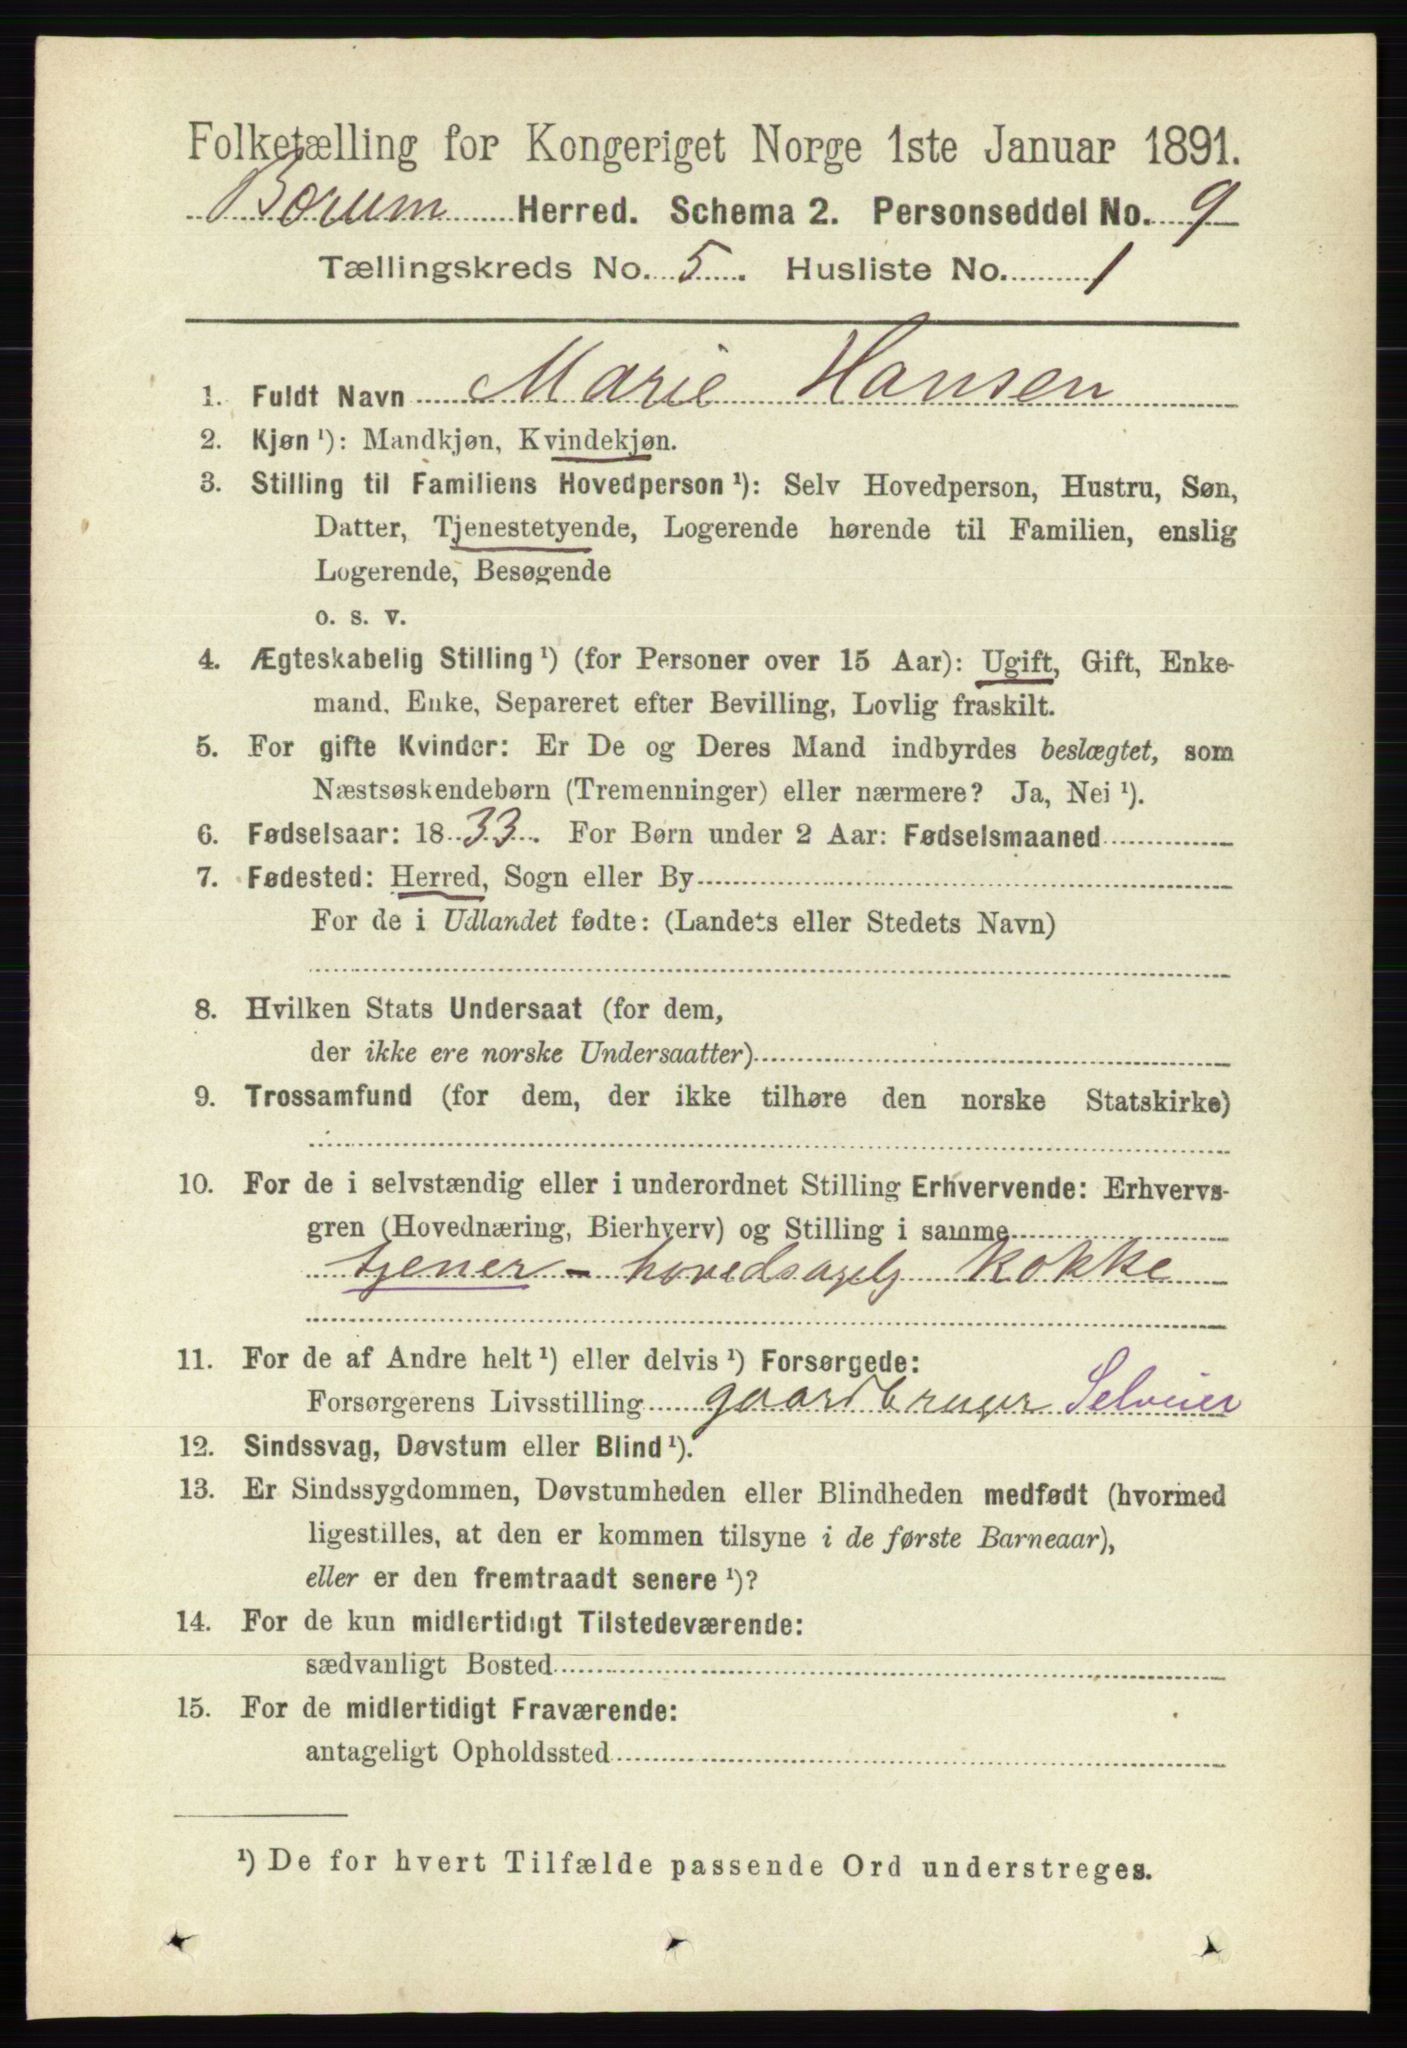 Folketælling for Kongeriget Norge 1ste Januar 1891.
Borum Herred. Schema 2. Personseddel No. 9
Tællingskreds No. 5. Husliste No. 1
1. Fuldt Navn Marie Hansen
2. Kjøn ¹): Mandkjøn, Kvindekjøn.
3. Stilling til Familiens Hovedperson ¹): Selv Hovedperson, Hustru, Søn,
Datter, Tjenestetyende, Logerende hørende til Familien, enslig
Logerende, Besøgende
o. s. v.
4. Ægteskabelig Stilling ¹) (for Personer over 15 Aar): Ugift, Gift, Enke-
mand, Enke, Separeret efter Bevilling, Lovlig fraskilt.
5. For gifte Kvinder: Er De og Deres Mand indbyrdes beslægtet, som
Næstsøskendebørn (Tremenninger) eller nærmere? Ja, Nei ¹).
6. Fødselsaar: 1833. For Børn under 2 Aar: Fødselsmaaned
7. Fødested: Herred, Sogn eller By
For de i Udlandet fødte: (Landets eller Stedets Navn)
8. Hvilken Stats Undersaat (for dem,
der ikke ere norske Undersaatter)
9. Trossamfund (for dem, der ikke tilhøre den norske Statskirke)
10. For de i selvstændig eller i underordnet Stilling Erhvervende: Erhvervs-
gren (Hovednæring, Bierhverv) og Stilling i samme
tjener - hovedsagelg kokke
11. For de af Andre helt ¹) eller delvis ¹) Forsørgede:
Forsørgerens Livsstilling gaardbruger Selveier
12. Sindssvag, Døvstum eller Blind ¹).
13. Er Sindssygdommen, Døvstumheden eller Blindheden medfødt (hvormed
ligestilles, at den er kommen tilsyne i de første Barneaar),
eller er den fremtraadt senere ¹)?
14. For de kun midlertidigt Tilstedeværende:
sædvanligt Bosted
15. For de midlertidigt Fraværende:
antageligt Opholdssted
¹) De for hvert Tilfælde passende Ord understreges.